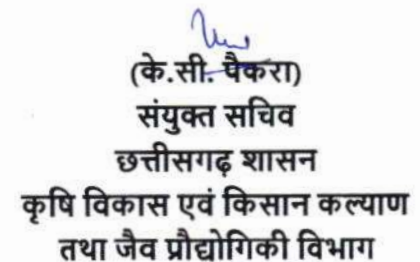 (के.सी. पैकरा)
संयुक्त सचिव
छत्तीसगढ़ शासन
कृषि विकास एवं किसान कल्याण
तथा जैव प्रौद्योगिकी विभाग